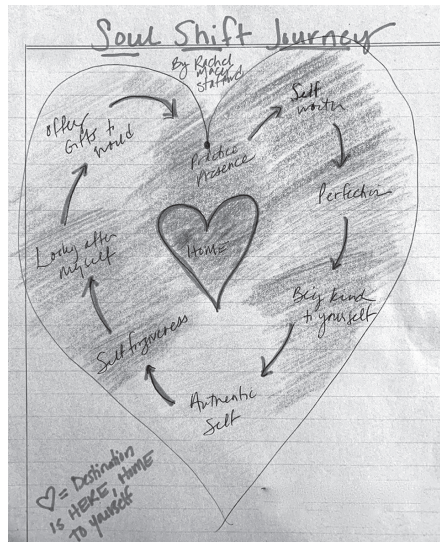 Soul Shift Journey
By Rachel
Macy
Stafford
Practice
Presence
Self
worth
Perfection
Being kind
to yourself
Authentic
Self
Self forgiveness
Looking after
myself
Offer
Gifts to
world
HOME
♡ = Destination
IS HERE, HOME
TO yourself